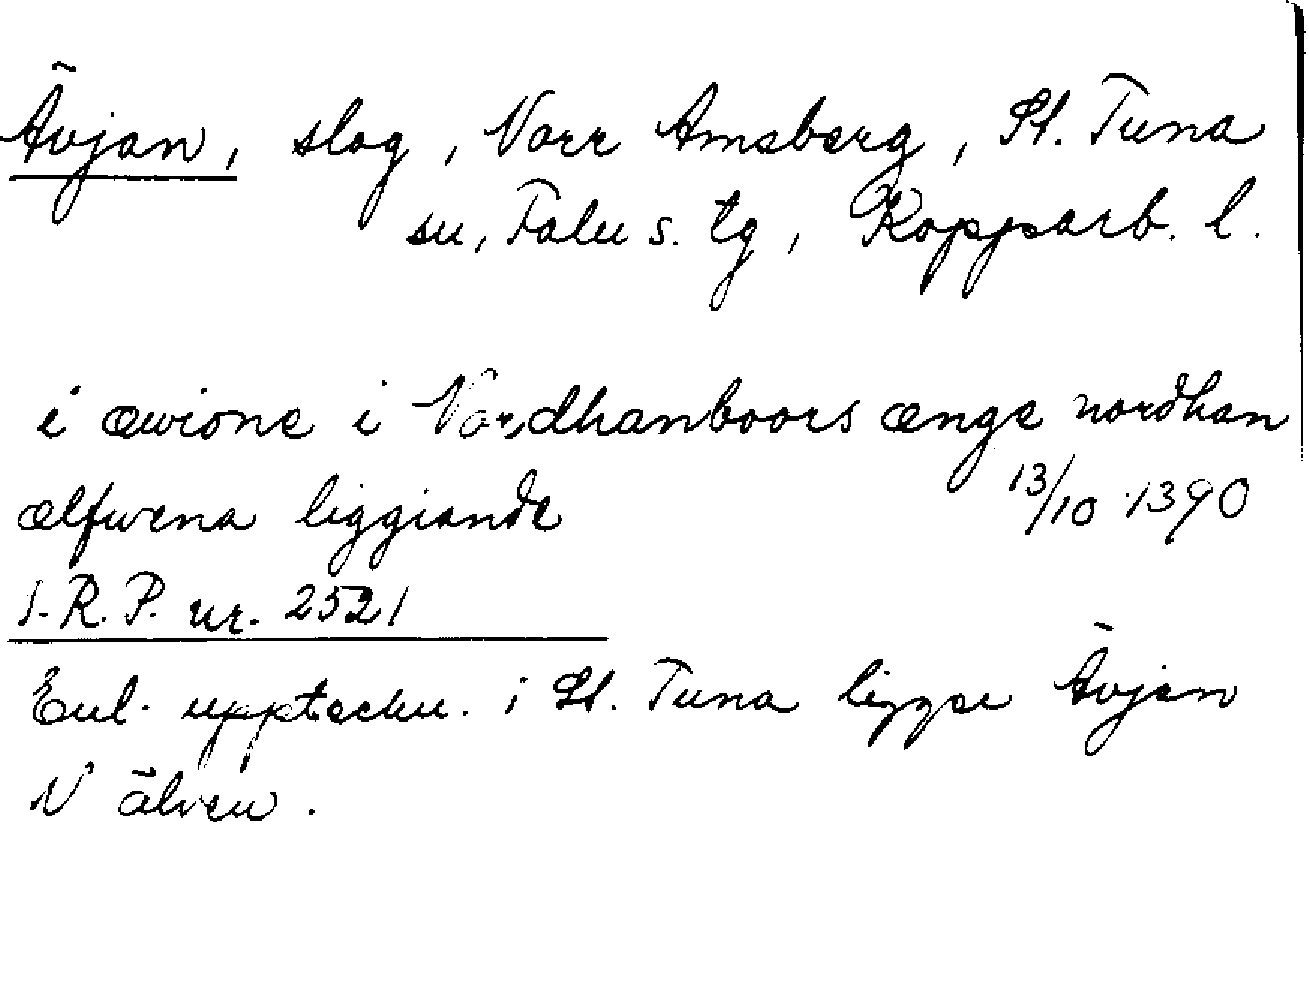 Ävjan, slog, Norr Amsberg, St. Tuna
sn, Falu s. tg, Kopparb. l.
i æwione i Nordhanboors ænge nordhan
ælfwena liggiande 13/10 1390
S.R.P. nr. 2521
Enl. uppteckn. i St. Tuna ligger Ävjan
N älven.